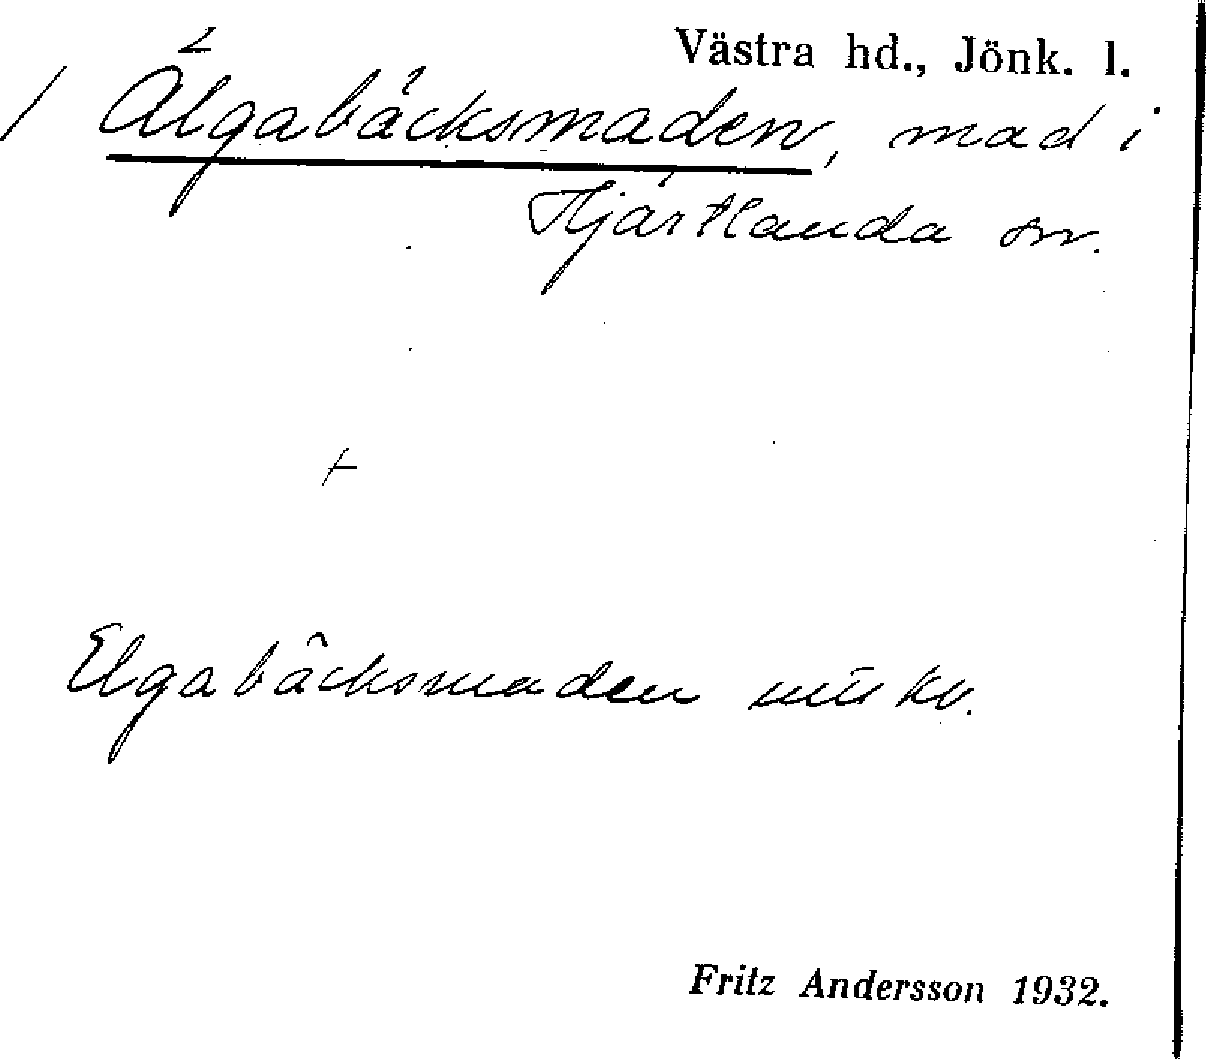 Västra hd., Jönk. l.
/ Älgabäcksmaden, mad i
Hjärtlanda sn.
+
Elgabäcksmaden
Fritz Andersson 1932.